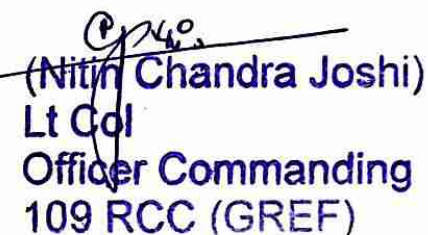 (Nitin Chandra Joshi)
Lt Col
Officer Commanding
109 RCC (GREF)